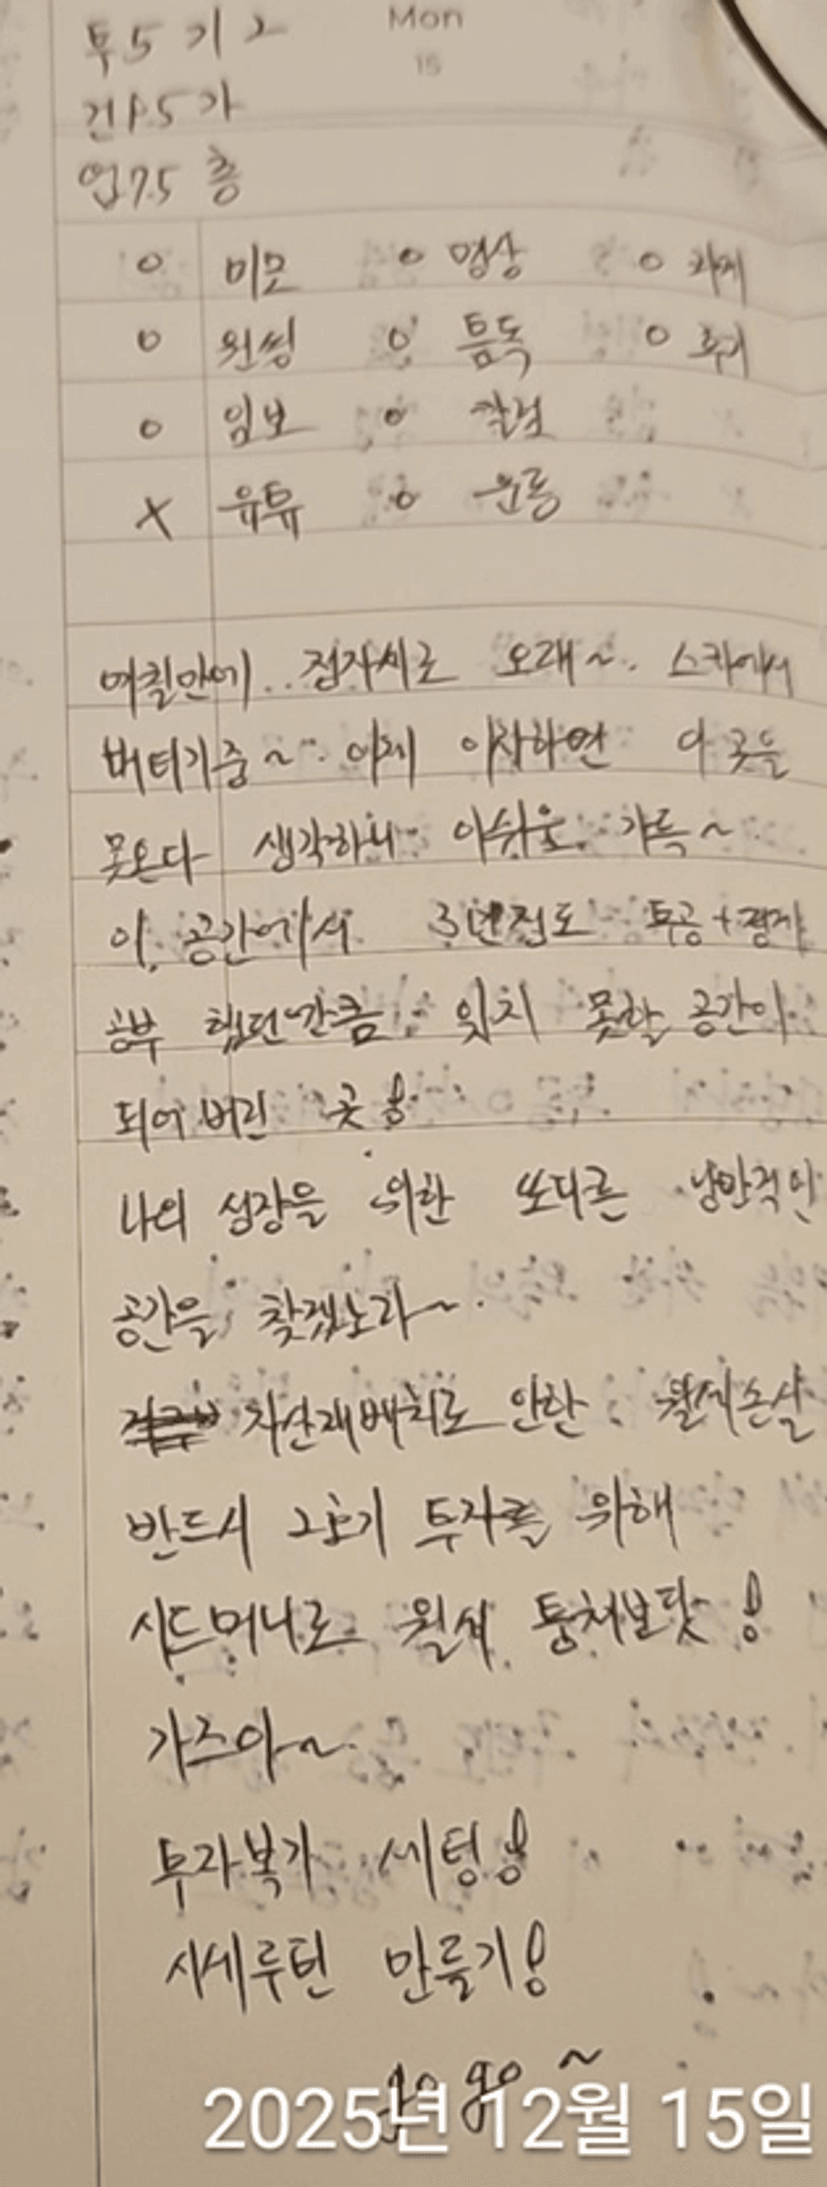 투5 기2
Mon
15
건1.5 가
업7.5 총
o 미모 o 영상 o 가계
o 원씽 o 틈독 o 후기
o 임보 o 칼럼
x 유튜 o 운동
며칠만에.. 점자씨로 오래~. 스카에서
버티기중~ 이제 이사하면 이 곳을
못온다 생각하니 아쉬움 가득~
이 공간에서 3년정도 투공+경제
공부 했던만큼 잊지 못할 공간이
되어버린 곳!
나의 성장을 위한 또다른 낭만적인
공간을 찾겠노라~
자산재배치로 인한 월세손실
반드시 2호기 투자를 위해
시드머니로 월세 퉁쳐보닷!
가즈아~
투자복기 세팅!
시세루틴 만들기!
go go ~
2025년 12월 15일